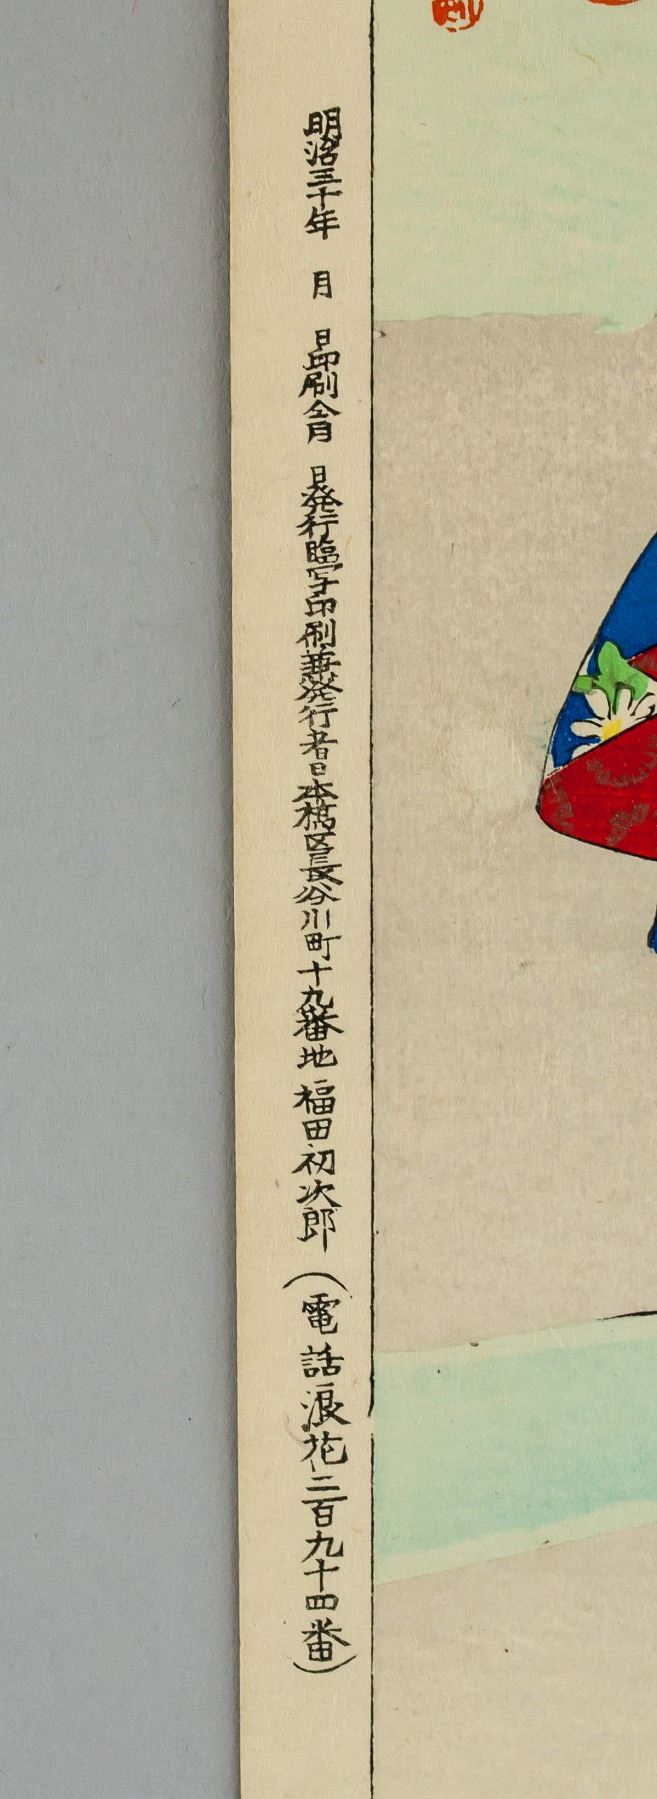 明治三十年　月　日印刷仝年　月　日発行臨写印刷兼発行者日本橋区長谷川町十九番地福田初次郎（電話浪花二百九十四番）